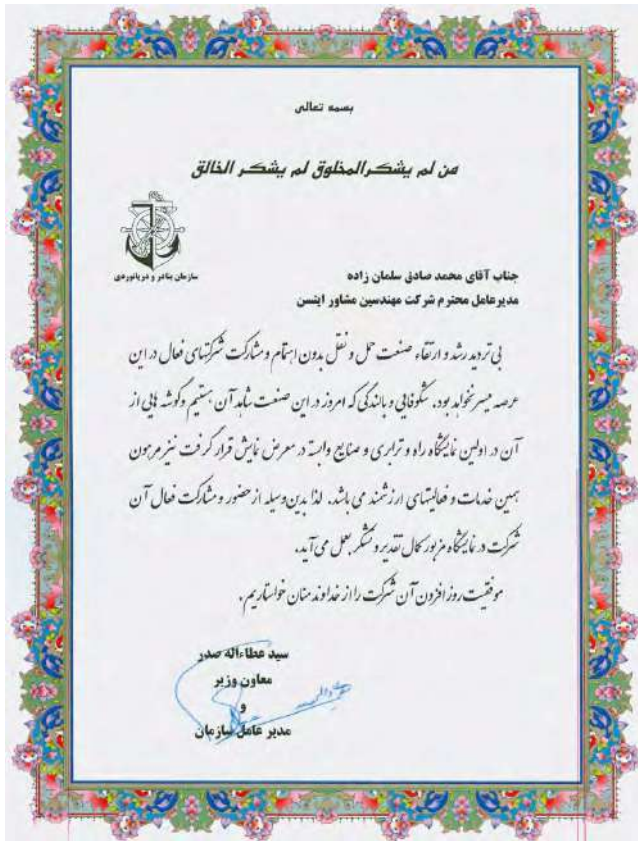 بسمه تعالی
من لم یشکرالمخلوق لم یشکر الخالق
سازمان بنادر و دریانوردی
جناب آقای محمد صادق سلمان زاده
مدیرعامل محترم شرکت مهندسین مشاور اینسن
بی تردید رشد و ارتقاء صنعت حمل و نقل بدون اهتمام و مشارکت شرکتهای فعال در این
عرصه میسر نخواهد بود، شکوفایی و بالندگی که امروز در این صنعت شاهد آن هستیم و گوشه هایی از
آن در اولین نمایشگاه راه و ترابری و صنایع وابسته در معرض نمایش قرار گرفت نیز مرهون
همین خدمات و فعالیتهای ارزشمند می باشد. لذا بدین‌وسیله از حضور و مشارکت فعال آن
شرکت در نمایشگاه مزبور کمال تقدیر و تشکر بعمل می آید.
موفقیت روز افزون آن شرکت را از خداوند منان خواستاریم.
سید عطاءاله صدر
معاون وزیر
و
مدیر عامل سازمان